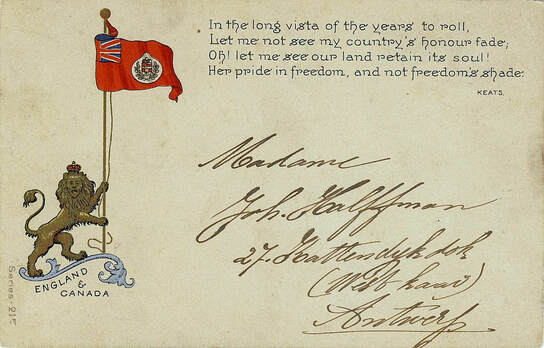 In the long vista of the years to roll,
Let me not see my country's honour fade;
Oh! let me see our land retain its soul!
Her pride in freedom, and not freedom's shade.
KEATS.
Madame
Joh. Halffman
27. Kattendykdok
(West kaai)
Antwerp
ENGLAND
&
CANADA
Series-215